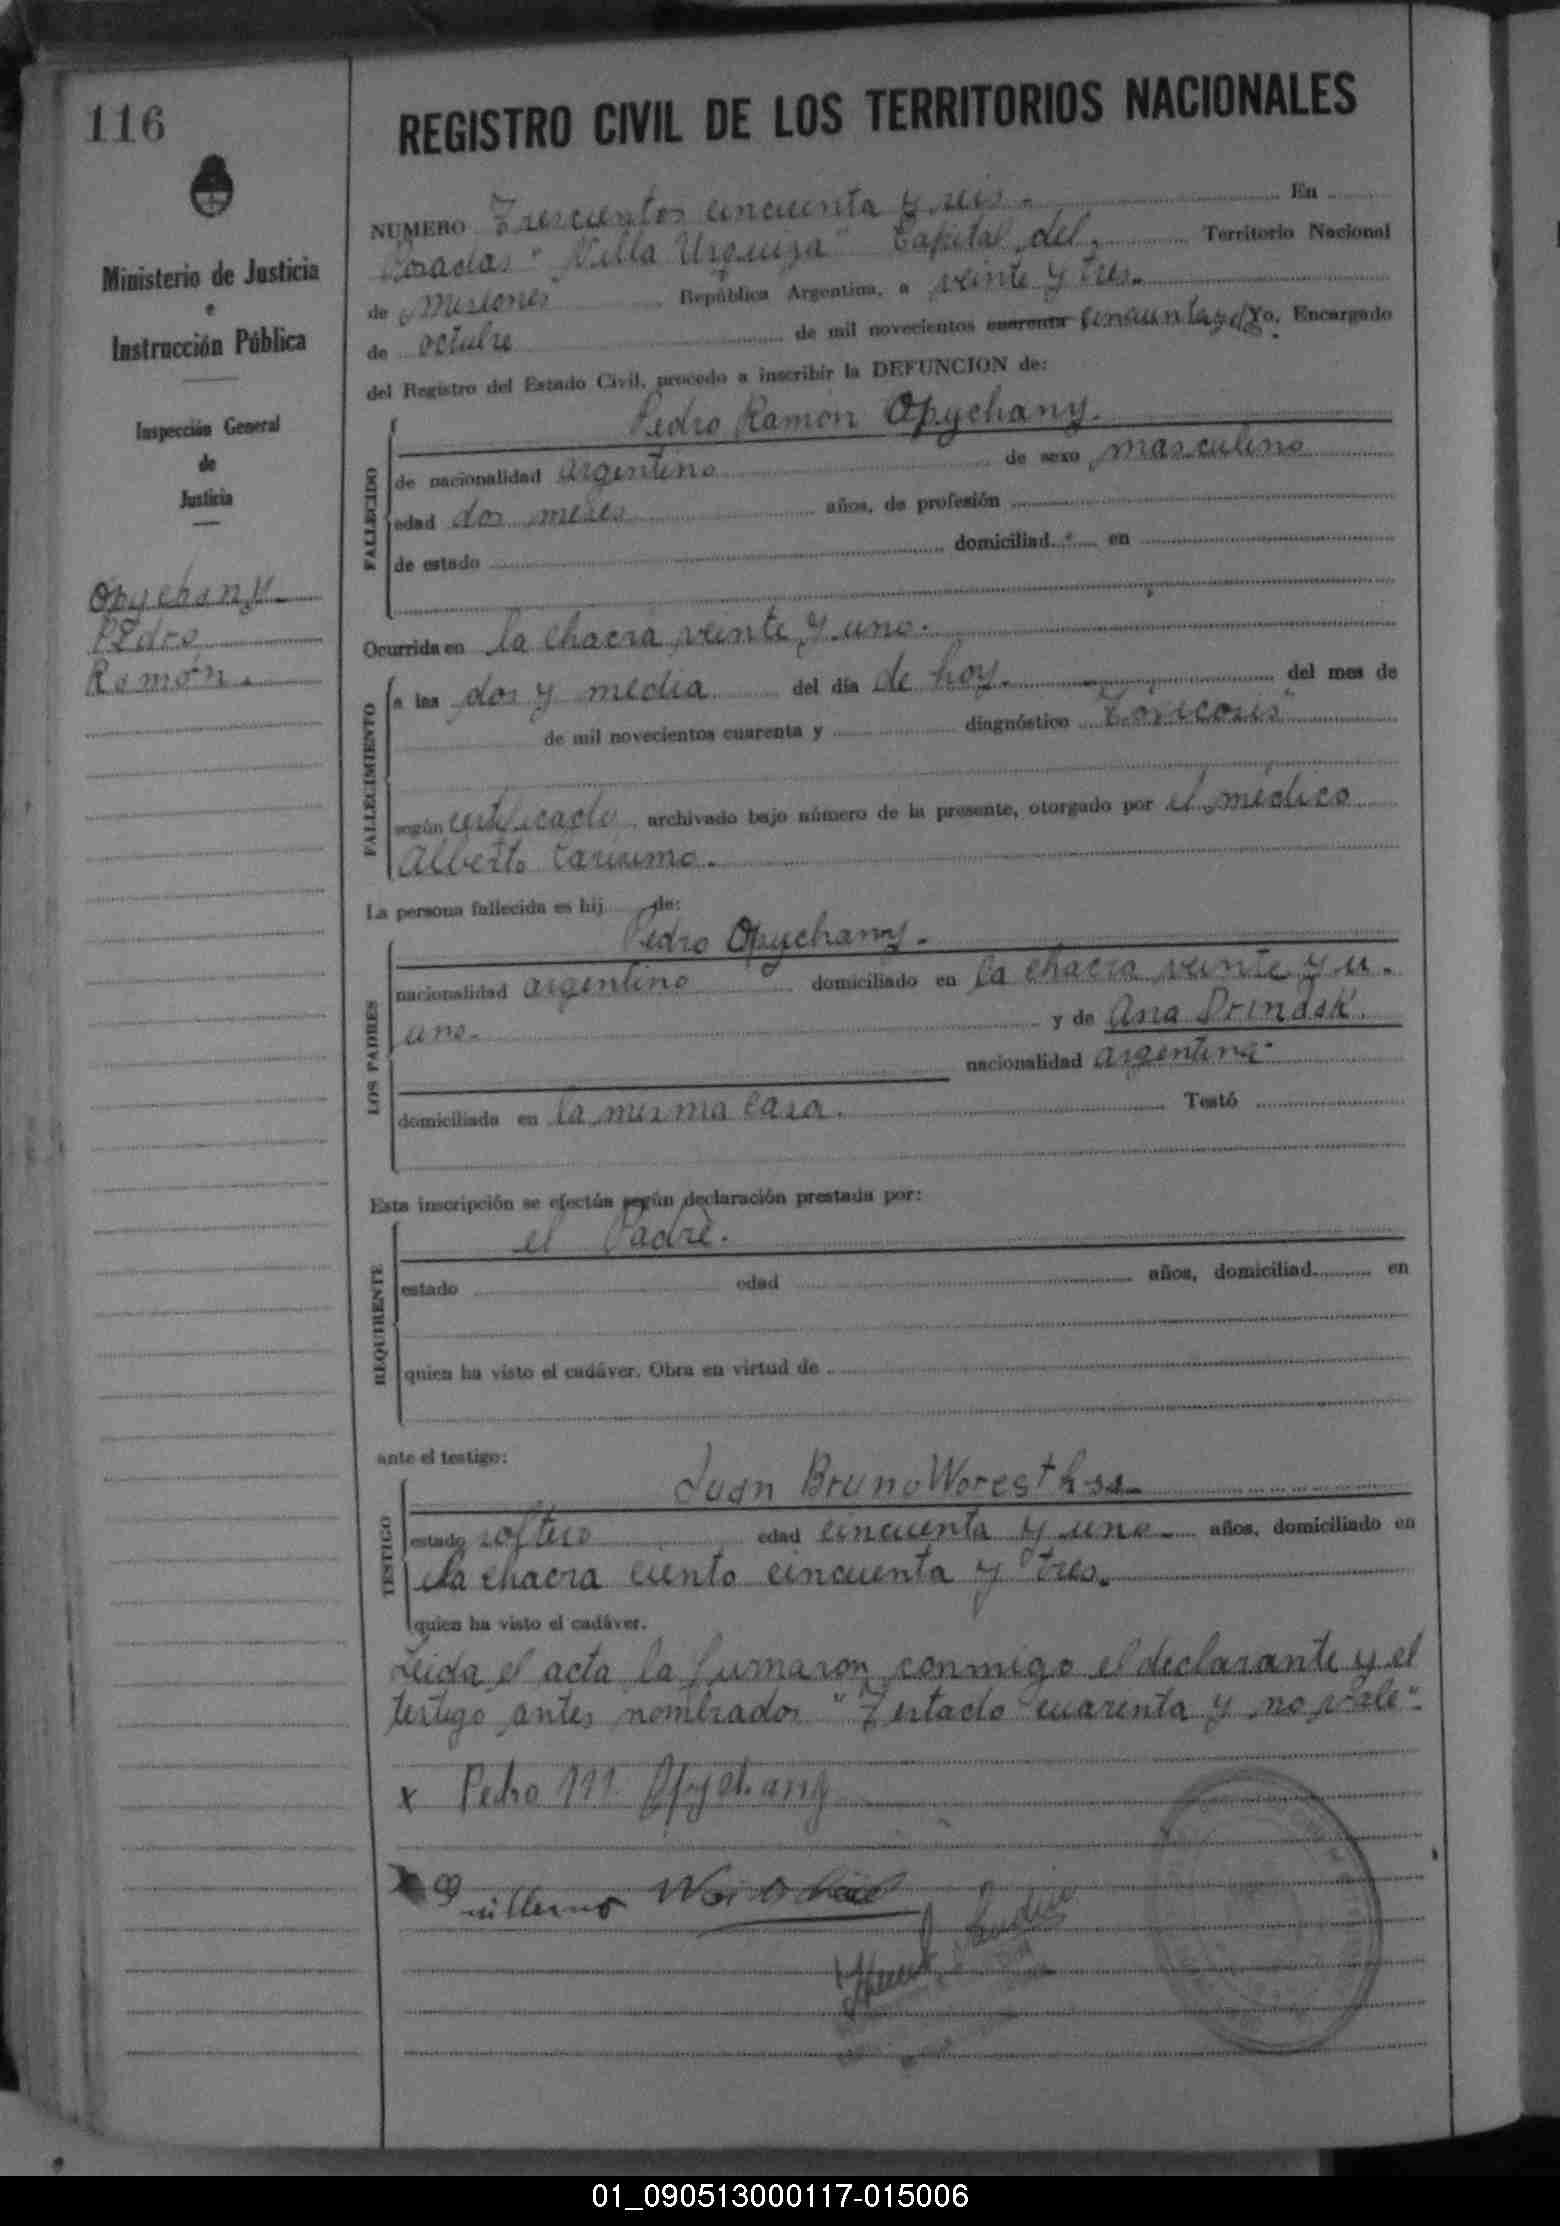 116
REGISTRO CIVIL DE LOS TERRITORIOS NACIONALES
Ministerio de Justicia
e
Instrucción Pública
Inspección General
de
Justicia
Opychany
Pedro
Ramón.
NUMERO Trescientos cincuenta y seis. En
Posadas "Villa Urquiza" Capital del. Territorio Nacional
de Misiones República Argentina, a veinte y tres.
de octubre de mil novecientos cuarenta cincuenta Yo, Encargado
del Registro del Estado Civil, procedo a inscribir la DEFUNCION de:
Pedro Ramón Opychany.
FALLECIDO
de nacionalidad argentino de sexo masculino
edad dos meses años, de profesión
de estado domiciliad en
Ocurrida en la chacra veinte y uno.
FALLECIMIENTO
a las dos y media del día de hoy. del mes de
de mil novecientos cuarenta y diagnóstico
según certificado archivado bajo número de la presente, otorgado por el médico
Alberto
La persona fallecida es hij de:
Pedro Opychany.
LOS PADRES
nacionalidad argentino domiciliado en la chacra veinte y u.
uno. y de Ana Prindsk.
nacionalidad argentina.
domiciliada en la misma casa. Testó
Esta inscripción se efectúa según declaración prestada por:
el Padre.
REQUIRENTE
estado edad años, domiciliad en
quien ha visto el cadáver. Obra en virtud de
ante el testigo:
Juan Bruno
TESTIGO
estado soltero edad cincuenta y uno. años, domiciliado en
la chacra ciento cincuenta y tres.
quien ha visto el cadáver.
Leida el acta la firmaron conmigo el declarante y el
testigo antes nombrados "Testado cuarenta y no vale".
x Pedro M. Opychany
Guillermo
01_090513000117-015006